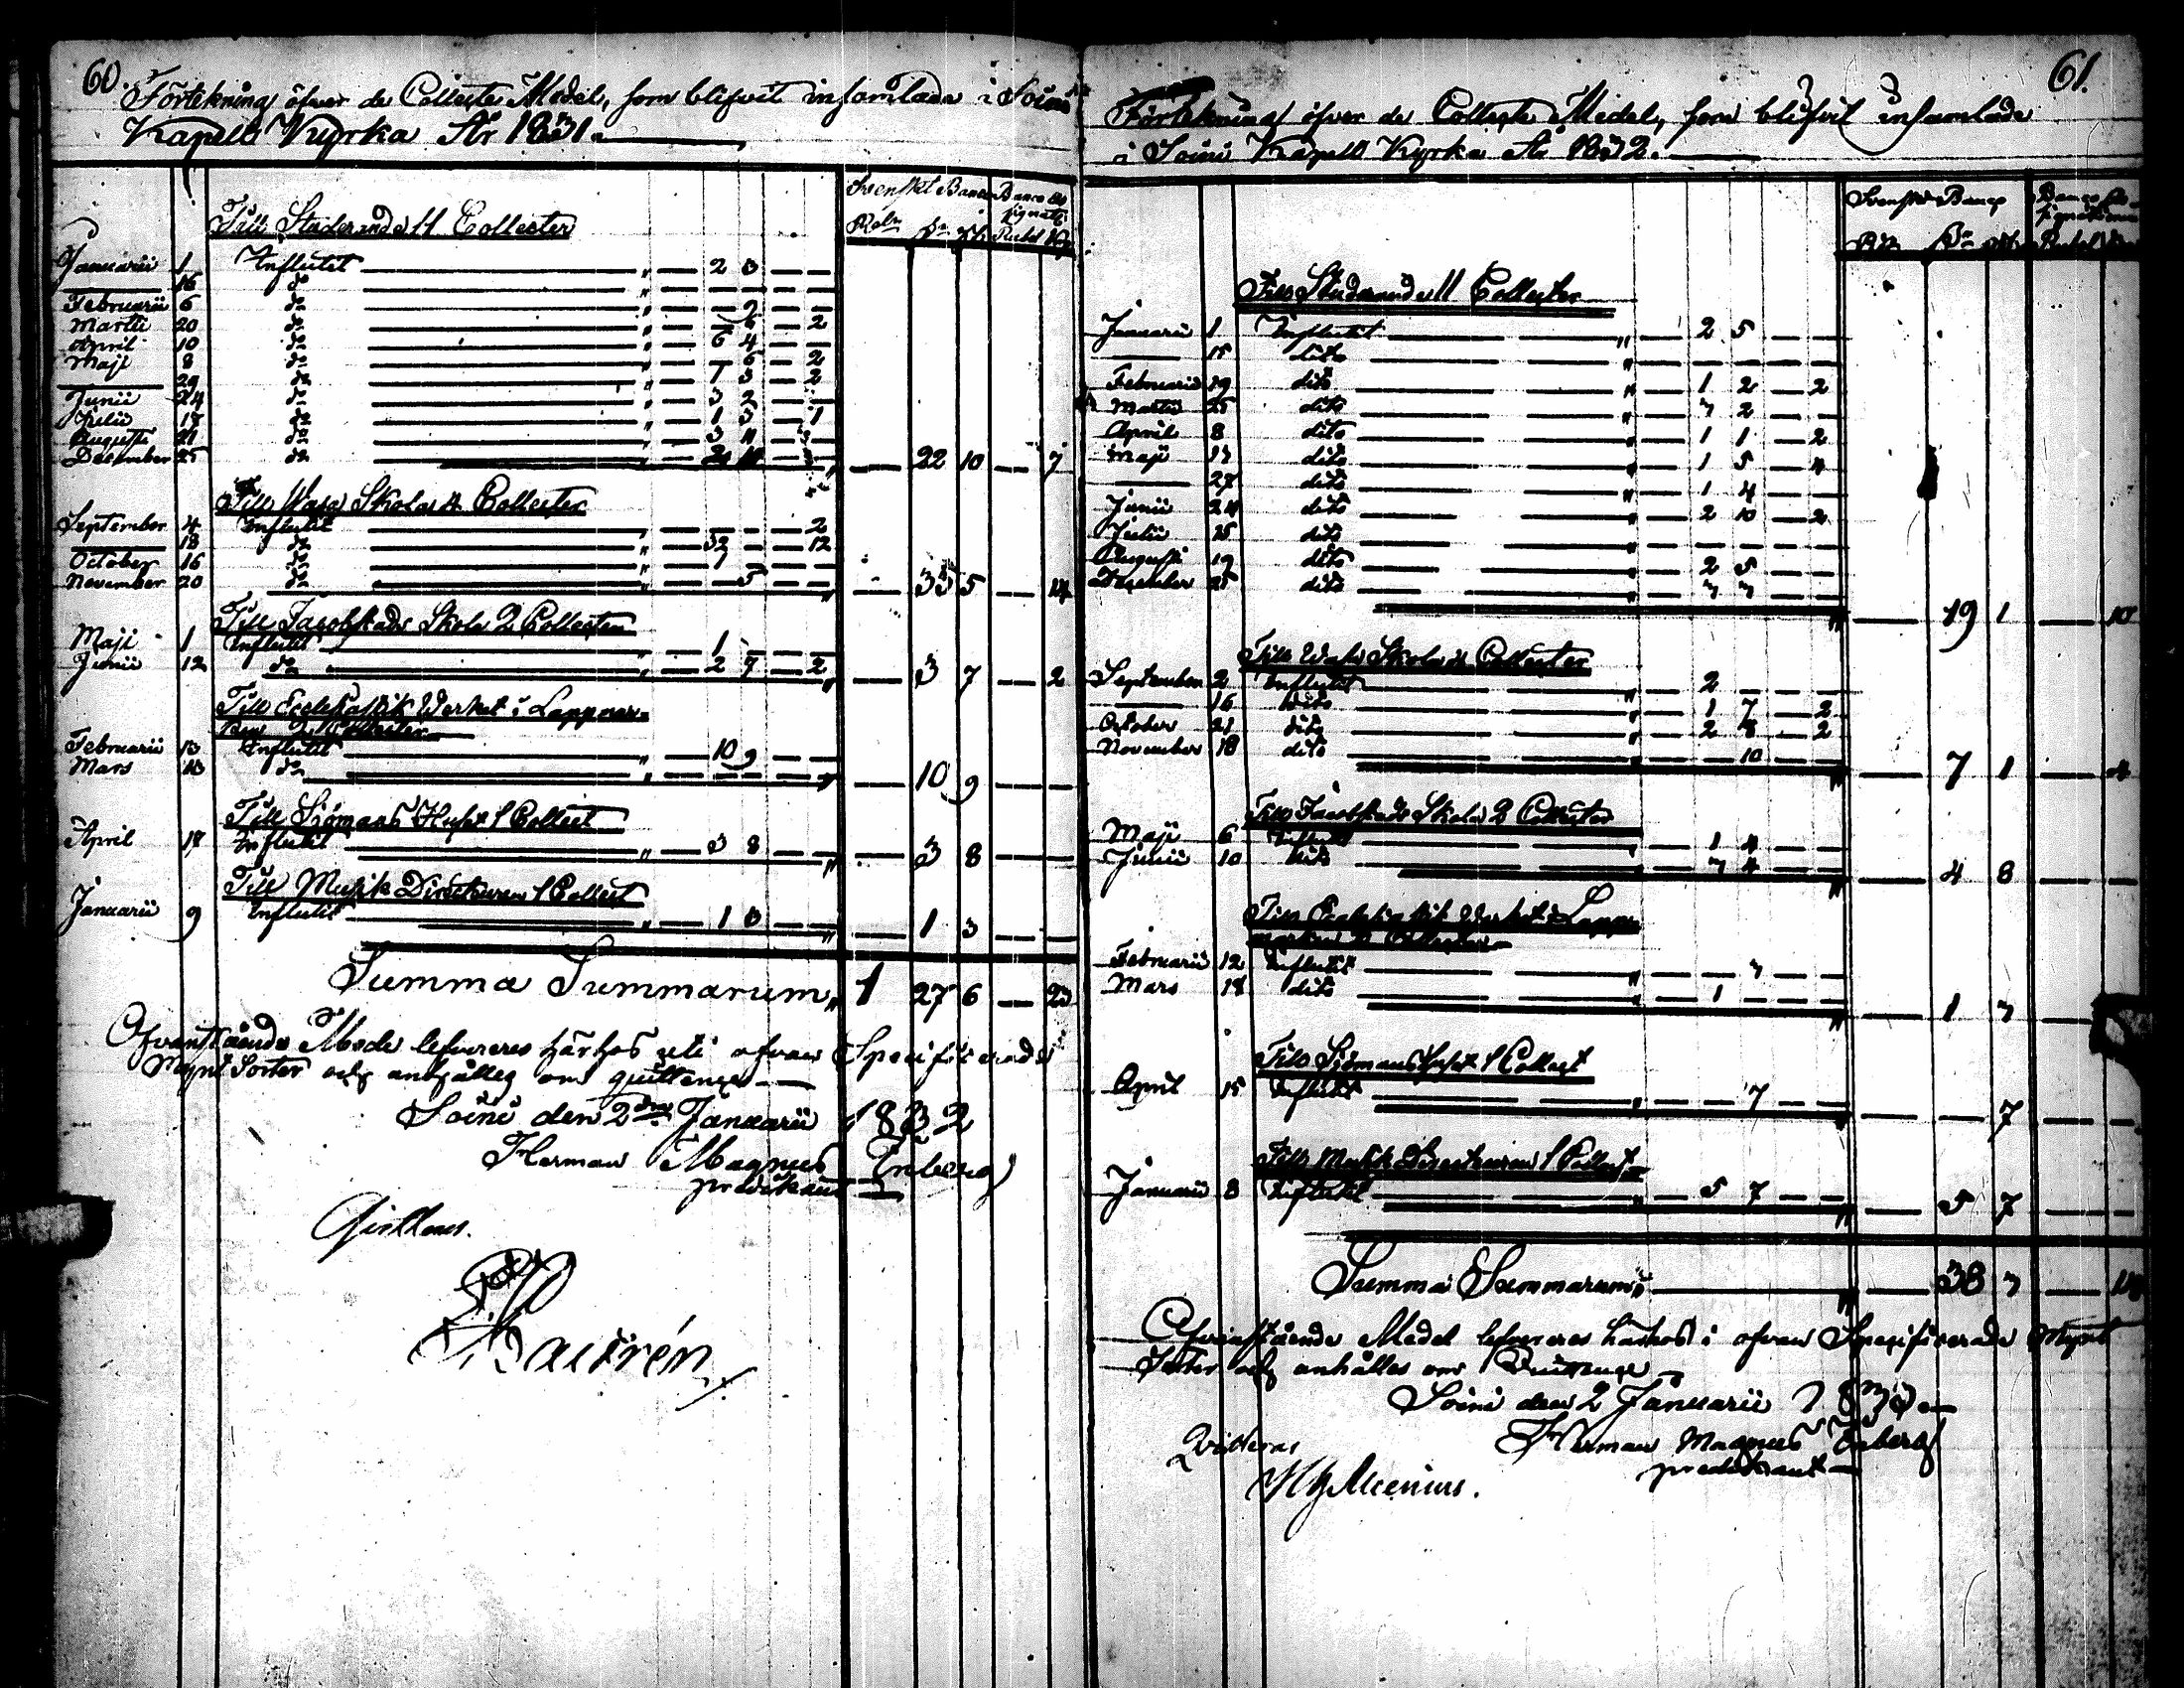 60.
Förtekning öfver de Collecte Medel, som blifvit insamlade i Soini
Kapells Kyrka År 1831.
Svenskt Banco Banco Assignatt
Rdr S. rst. Rubel Kop
Till Studerande 11 Collecter
Januarii 1 Influtit " 2 3
16 do "
Februarii 6 do " 2
Martii 20 do " 6 2
April 10 do " 6 4
Maji 8 do " 6 2
29 do " 1 3 2
Junii 24 do " 3 2
Julii 17 do " 1 3 1
Augusti 21 do " 3 11
December 25 do " 22 10 7
Till Wasa Skola 4 Collecter
September 4 Influtit 2
18 do " 32 12
October 16 do " 1
November 20 do " 5 " 33 5 14
Till Jacobstads Skola 2 Collecter
Maji 1 Influtit " 1
Junii 12 do " 2 7 2 " 3 7 2
Till Ecclesiastik Werket i Lappmar-
ken 2 Collecter
Februarii 13 Influtit " 10 9
Mars 13 do " " 10 9
Till Sjömans Huset 1 Collect
April 17 Influtit " 3 8 " 3 8
Till Musik Directeuren 1 Collect
Januarii 9 Influtit " 1 3 " 1 3
Summa Summarum " 1 27 6 23
Ofvanstående Medel lefvereres härhos uti ofvan Specificerade
Mynt Sorter och anhålles om quittence
Soini den 2dra Januarii 1832
Herman Magnus Inberg
predikant
Qvitteras.
61.
Förtekning öfver de Collecte Medel, som blifvit insamlade
i Soini Kapells Kyrka År 1832.
Svenskt Banco Banco Assignationer
Rdr S. rst Rubel Kop
Till Studerande 11 Collecter
Januarii 1 Influtit " 2 5
15 dito "
Februarii 19 dito " 1 2 2
Martii 25 dito " 3 2
April 8 dito " 1 1 2
Maji 17 dito " 1 5 4
27 dito " 1 4
Junii 24 dito " 2 10 2
Julii 15 dito "
Augusti 19 dito " 2 5
December 25 dito " 3 3
" 19 1 10
Till Wasa Skola 4 Collecter
September 2 Influtit " 2
16 dito " 1 7 2
October 21 dito " 2 8 2
November 18 dito 10 " 7 1 4
Till Jacobstads Skola 2 Collecter
Maji 6 Influtit " 1 4
Junii 10 dito " 3 4 " 4 8
Till Ecclesiastik Werket i Lapp-
marken 2 Collecter
Februarii 12 Influtit " 3
Mars 18 dito " 1 " 1 3
Till Sjömanshuset 1 Collect
April 15 Influtit " 7 " 7
Till Musik Directeuren 1 Collect
Januarii 8 Influtit " 5 7 " 5 7
Summa Summarum " 38 3 14
Ofvanstående Medel lefvereres härhos i ofvan Specificerade Mynt
Sorter och anhålles om Quittence
Soini den 2 Januarii 1833
Herman Magnus Inberg
predikant
Qvitteras